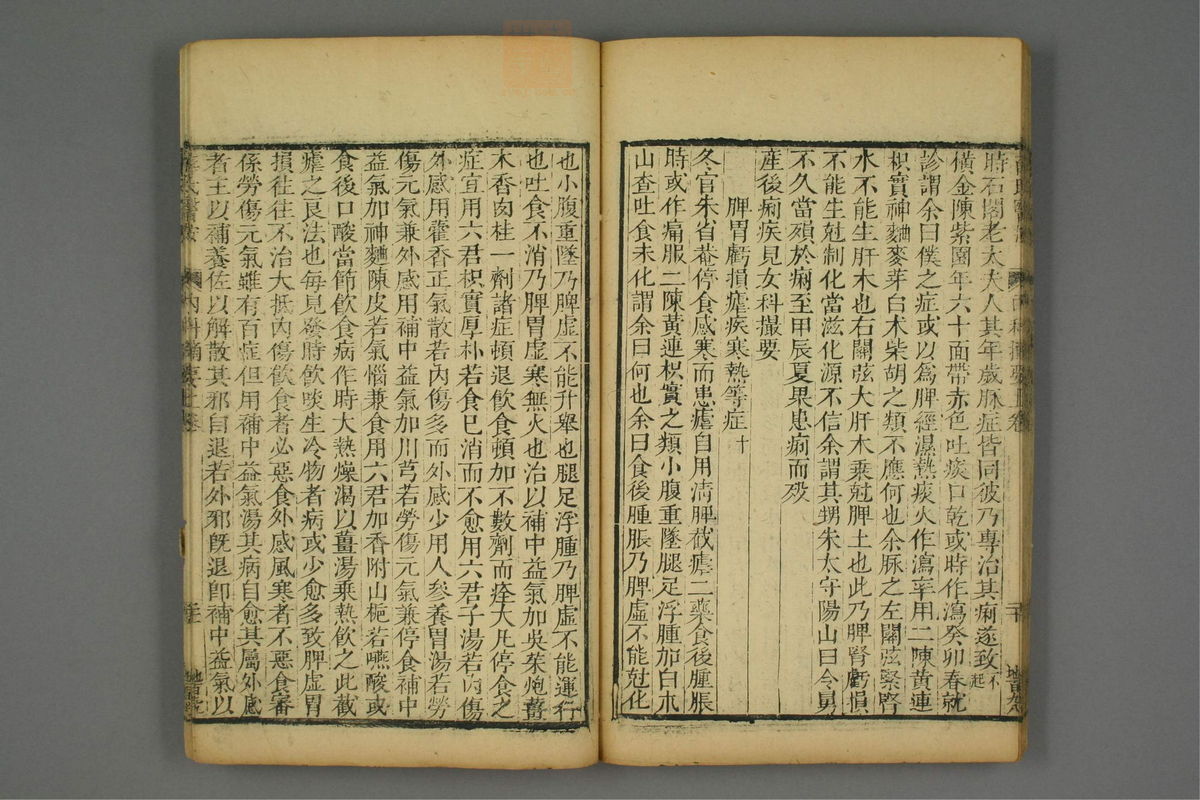 時石閣老太夫人其年歲脉症皆同彼乃專治其痢遂致不起
橫金陳紫園年六十面帶赤色吐痰口乾或時作瀉癸卯春就
診謂余曰僕之症或以爲脾經濕熱痰火作瀉率用二陳黃連
枳實神麯麥芽白术柴胡之類不應何也余脉之左關弦緊腎
水不能生肝木也右關弦大肝木乗尅脾土也此乃脾腎虧損
不能生尅制化當滋化源不信余謂其甥朱太守陽山曰令舅
不久當殞於痢至甲辰夏果患痢而殁
産後痢疾見女科撮要
脾胃虧損瘧疾寒熱等症十
冬官朱省菴停食感寒而患瘧自用清脾截瘧二藥食後腫脹
時或作痛服二陳黃連枳實之類小腹重墜腿足浮腫加白术
山查吐食未化謂余曰何也余曰食後腫脹乃脾虛不能尅化
也小腹重墜乃脾虛不能升舉也腿足浮腫乃脾虛不能運行
也吐食不消乃脾胃虛寒無火也治以補中益氣加吳茱炮薑
木香肉桂一劑諸症頓退飲食頓加不數劑而痊大凡停食之
症宜用六君枳實厚朴若食已消而不愈用六君子湯若内傷
外感用藿香正氣散若內傷多而外感少用人參養胃湯若勞
傷元氣兼外感用補中益氣加川芎若勞傷元氣兼停食補中
益氣加神麯陳皮若氣惱兼食用六君加香附山梔若嚥酸或
食後口酸當節飲食病作時大熱燥渴以薑湯乗熱飲之此截
瘧之良法也每見發時飲啖生冷物者病或少愈多致脾虛胃
損往往不治大抵內傷飲食者必惡食外感風寒者不惡食審
係勞傷元氣雖有百症但用補中益氣湯其病自愈其屬外感
者主以補養佐以解散其邪自退若外邪既退即補中益氣以